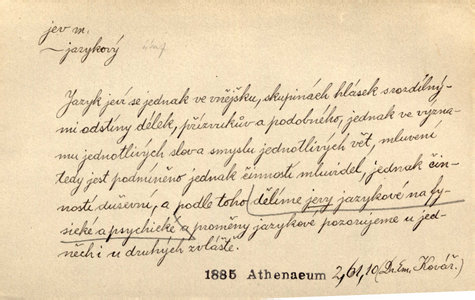 jev m.
~ jazykový
Jazyk jeví se jednak ve vnějšku, skupinách hlásek s rozdílný-
mi odstíny délek, přízvukův a podobného, jednak ve význa-
mu jednotlivých slov a smyslu jednotlivých vět, mluvení
tedy jest podmíněno jednak činností mluvidel, jednak čin-
ností duševní, a podle toho dělíme jevy jazykové na fy-
sické a psychické a proměny jazykové pozorujeme u jed-
něch i u druhých zvláště.
1885 Athenaeum 2,61,10 (Dr. Em. Kovář.)